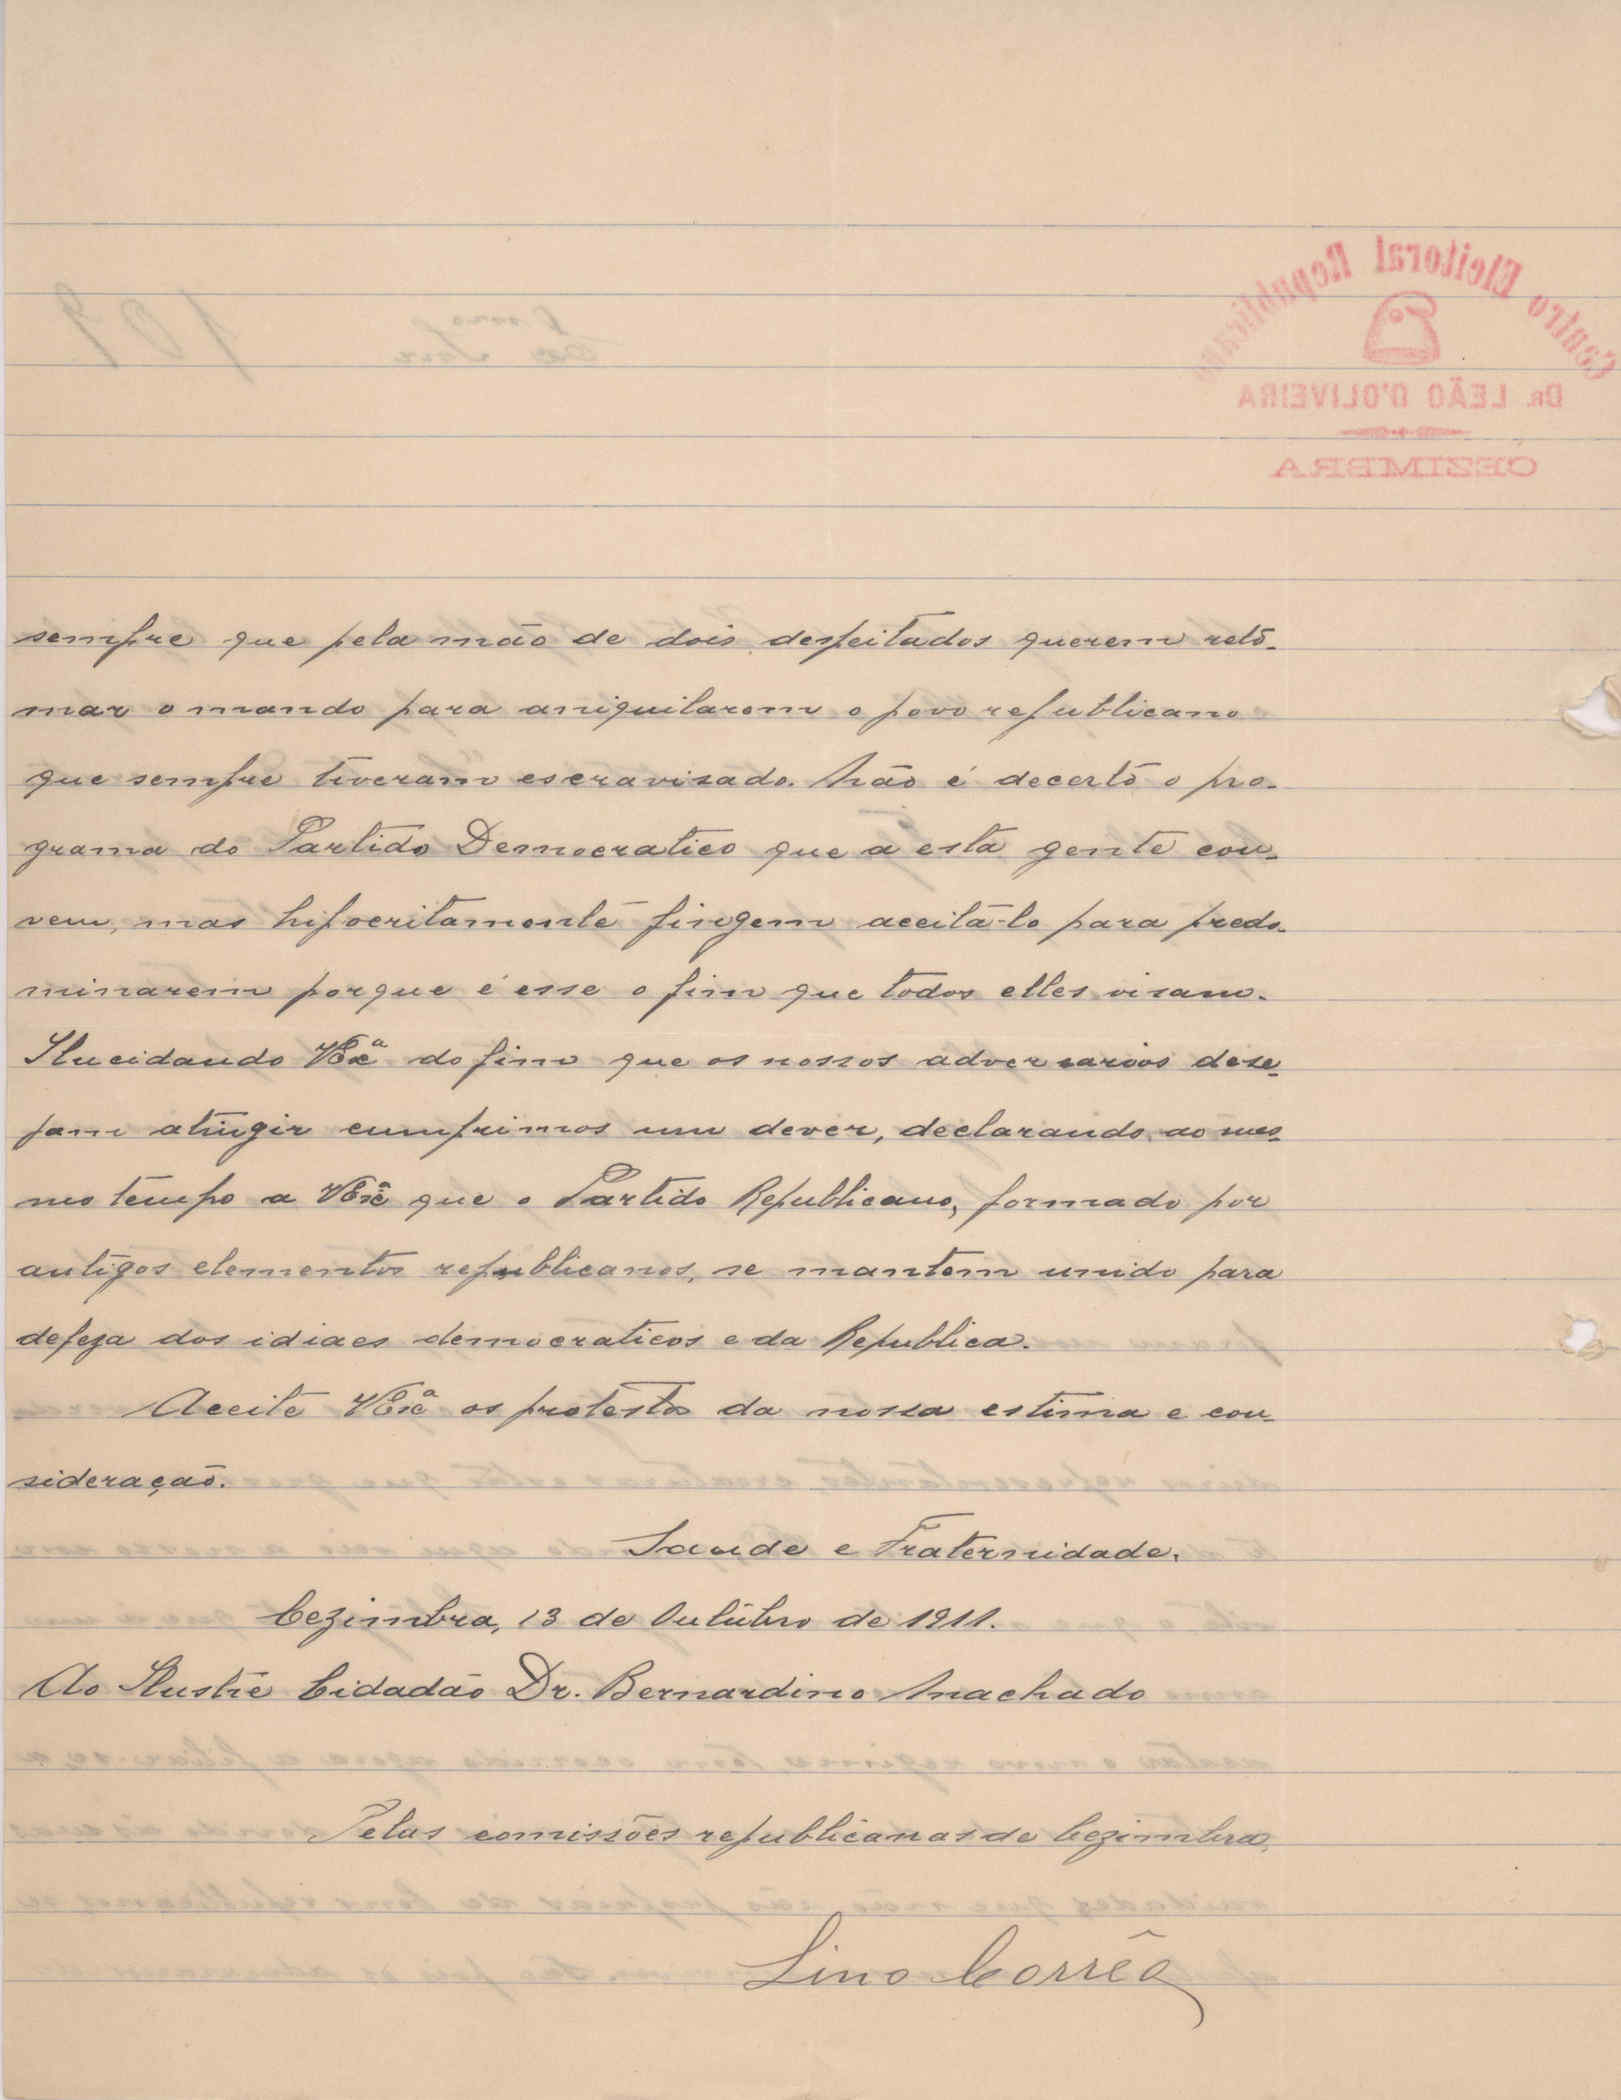 Centro Eleitoral Republicano
DR. LEÃO D'OLIVEIRA
CEZIMBRA
109
sempre que pela mão de dois despeitados querem reto-
mar o mando para aniquilarem o povo republicano
que sempre tiveram escravisado. Não é decerto o pro-
grama do Partido Democratico que a esta gente con-
vem, mas hipocritamente fingem aceitá-lo para predo-
minarem porque é esse o fim que todos elles visam.
Ilucidando VExª do fim que os nossos adversarios dese-
jam atingir cumprimos um dever, declarando ao mes-
mo tempo a VExª que o Partido Republicano, formado por
antigos elementos republicanos, se mantem unido para
defeza dos idiaes democraticos e da Republica.
Aceite VExª os protestos da nossa estima e con-
sideração.
Saude e Fraternidade.
Cezimbra, 13 de Outubro de 1911.
Ao Ilustre Cidadão Dr. Bernardino Machado
Pelas comissões republicanas de Cezimbra,
Lino Corrêa